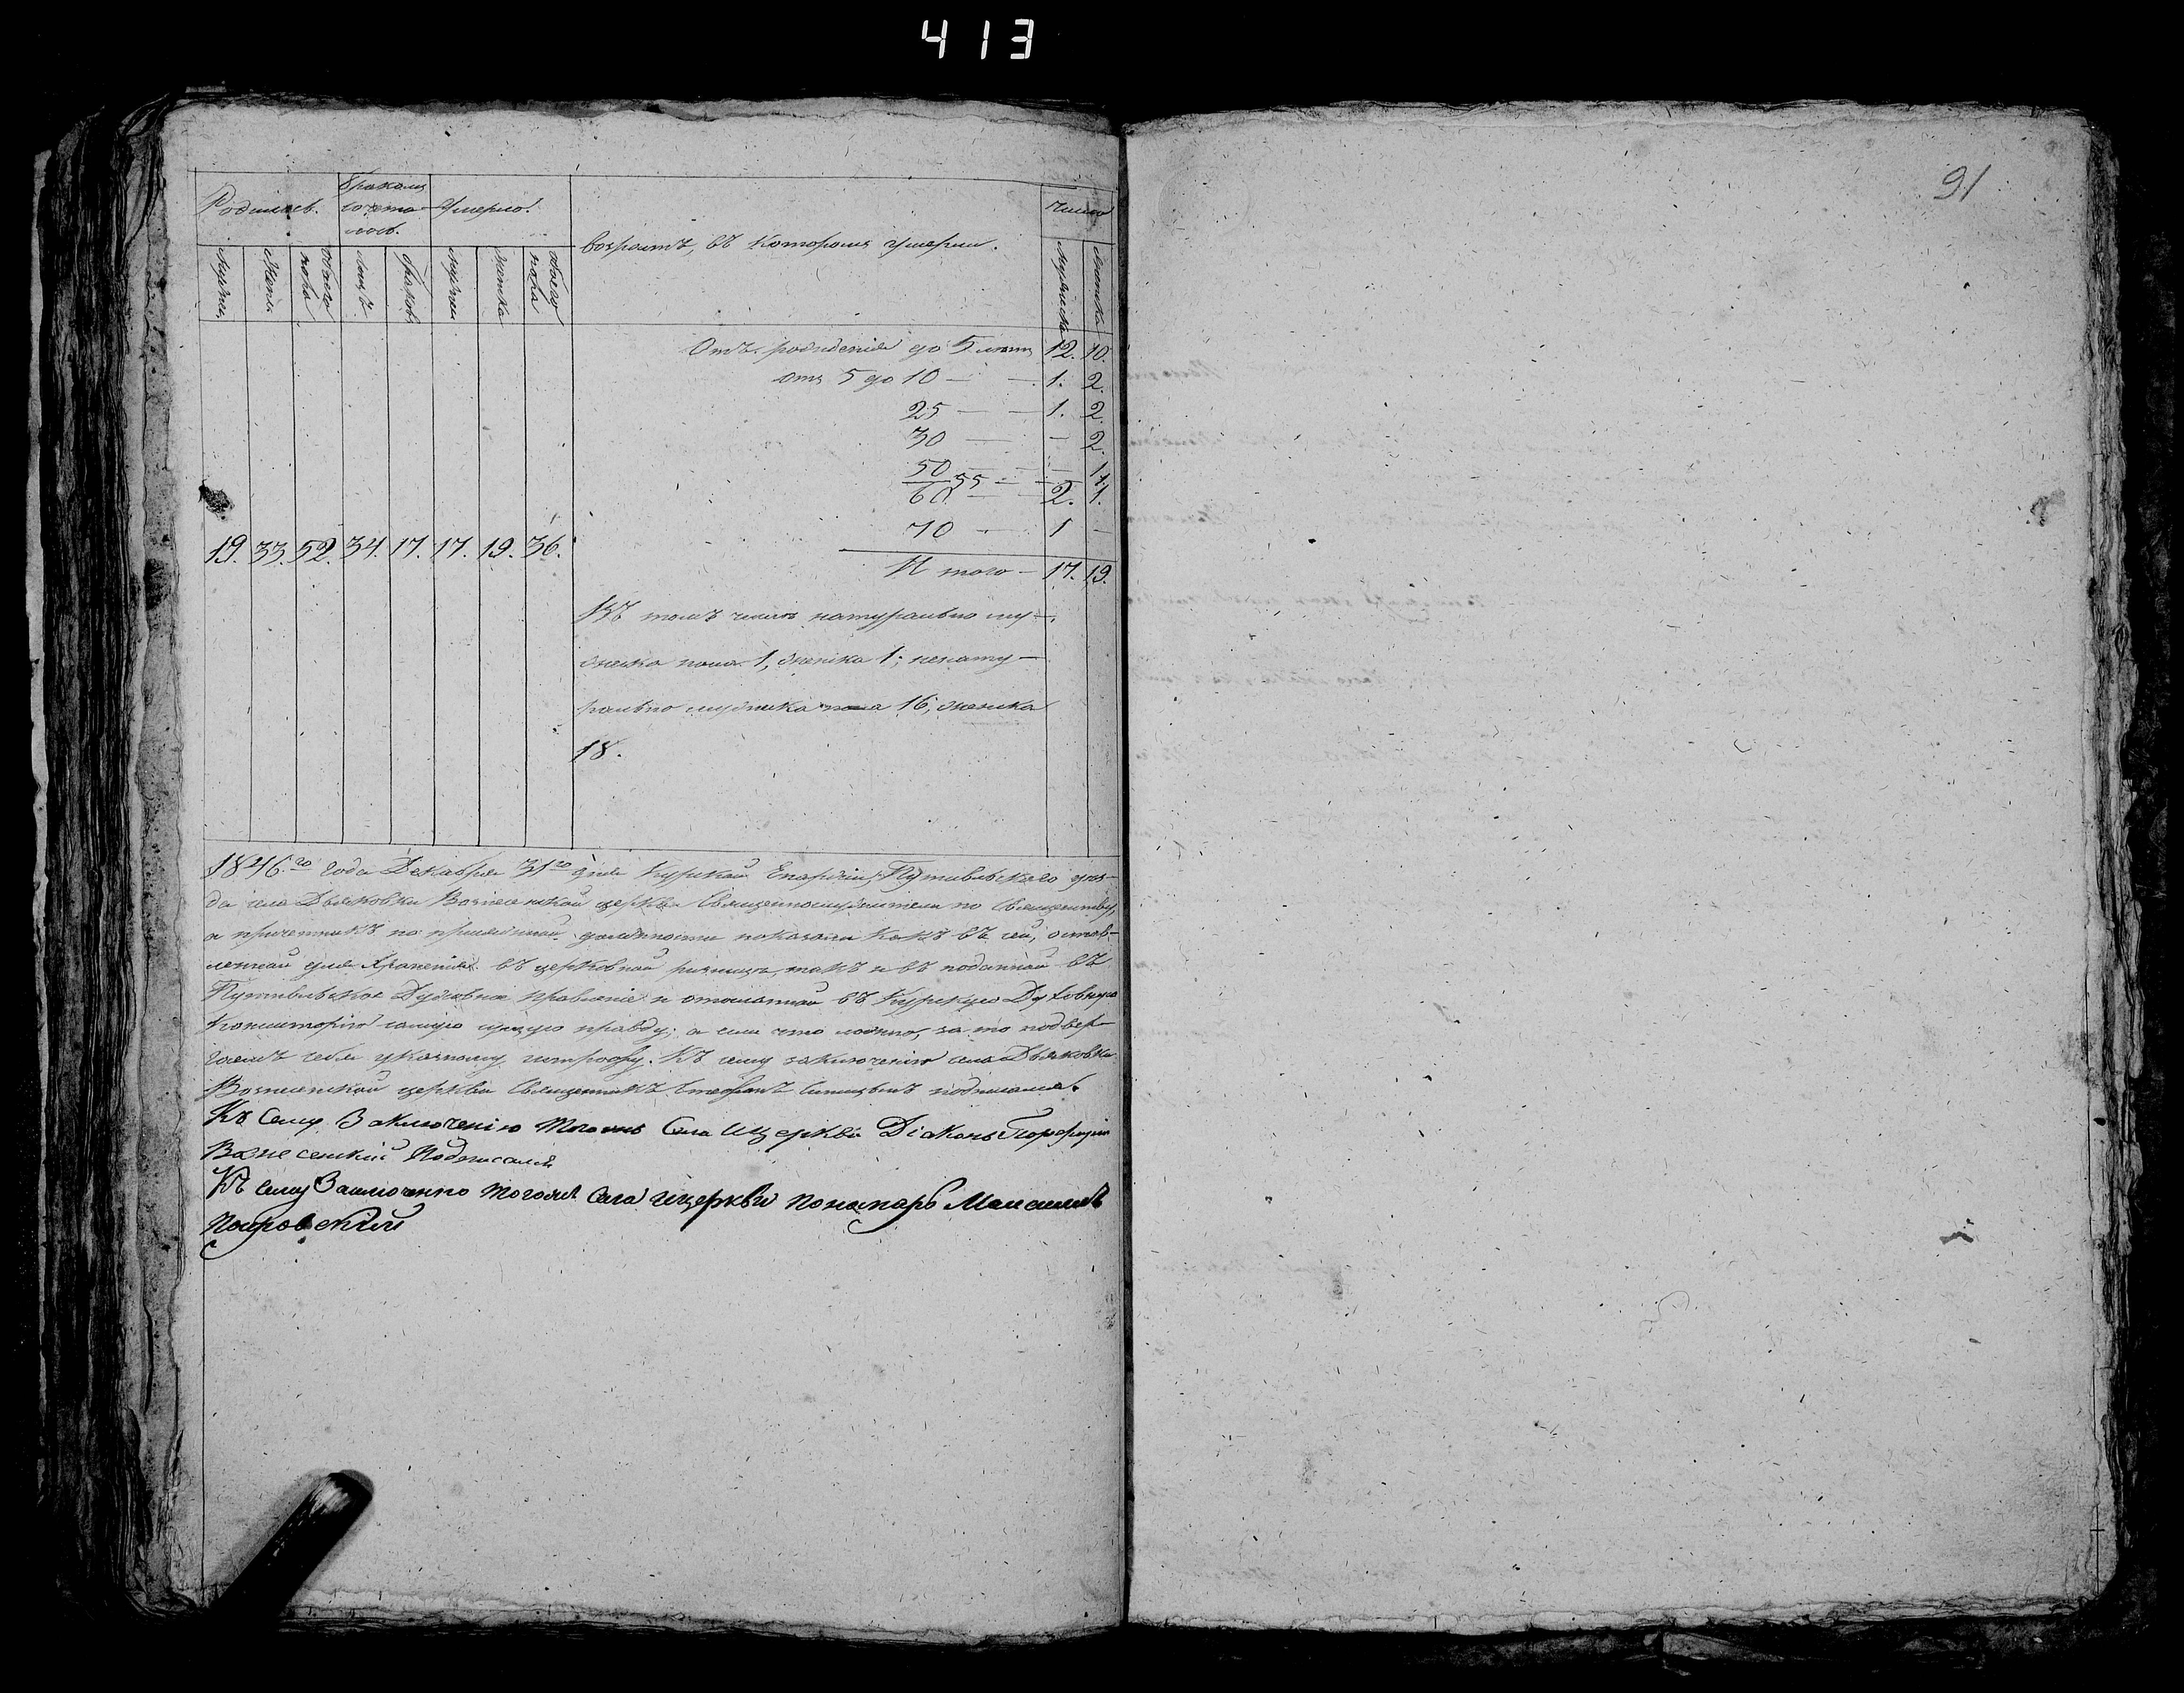 413
91
Родилось.
бракомъ
сочета-
лось.
Умерло.
возрастъ, въ которомъ умерли.
число
Мужеска
Женска
обоего пола
лицъ
браковъ
женска
обоего пола
мужеска
женска
Отъ рожденія до 5 лѣтъ 12. 10.
отъ 5 до 10 — — 1. 2.
25 — — 1. 2.
30 — — 2.
50 — — 1
55 — — 1.
60 — 2. 1.
70 — 1 —
19. 33. 52. 34. 17. 17. 19. 36.
И того — 17. 19.
Въ томъ числѣ натурально му-
жеска пола 1, женска 1; ненату-
рально мужеска пола 16, женска
18.
1846го года Декабря 31го дня Курской Епархіи, Путивльскаго уѣз-
да села Дьяковки Вознесенской церкви Священнослужители по Священству,
а причетникъ по присяжной должности показали какъ въ сей, остав-
ленной для храненія въ церковной ризницѣ, такъ и въ поданной въ
Путивльское Духовное правленіе и отосланной въ Курскую Духовную
Консисторію самую сущую правду; а если что ложно, за то подвер-
гаемъ себя указному штрафу. Къ сему заключенію села Дьяковки
Вознесенской церкви Священникъ Стефанъ подписался.
Къ Сему Заключенію тогожъ Села Ицеркви Діаконъ Порфирій
Вознесенскій Подписался
Къ сему Заключенію тогожъ Села ицеркви понамарь